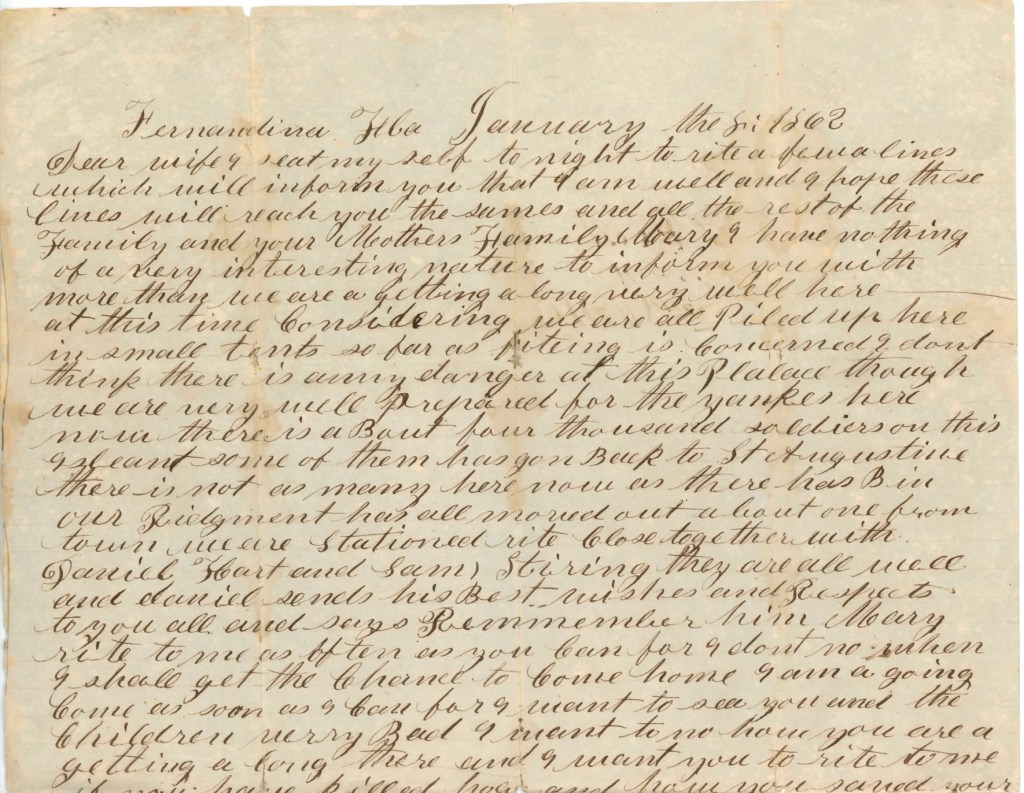 Fernandina Fla January the 1862
Dear wife I seat my self to night to rite a fewa lines
which will inform you that I am well and I hope these
lines will reach you the sames and all the rest of the
Family and your Mothers Family Mary I have nothing
of a very interesting nature to inform you with
more than we are a getting a long very well here
at this time Considering we are all Piled up here
in small tents so far as fiteing is Concerned I dont
think there is anny danger at this Plalace though
we are very well prepared for the yankes here
now there is a Bout four thousand soldiers on this
Isleant some of them has gon Back to St Augustine
there is not as many here now as there has Bin
our Ridgment has all moved out a bout one from
town we are Stationed rite Close together with
Daniel Hart and Sam Stiring they are all well
and daniel sends his Best wishes and Respects
to you all and says Remmember him Mary
rite to me as often as you Can for I dont no when
I shall get the Chanc to Come home I am a going
Come as soon as I Can for I want to sea you and the
Children verry Bad I want to no how you are a
getting a long there and I want you to rite to me
if you have killed hogs and how you saved your